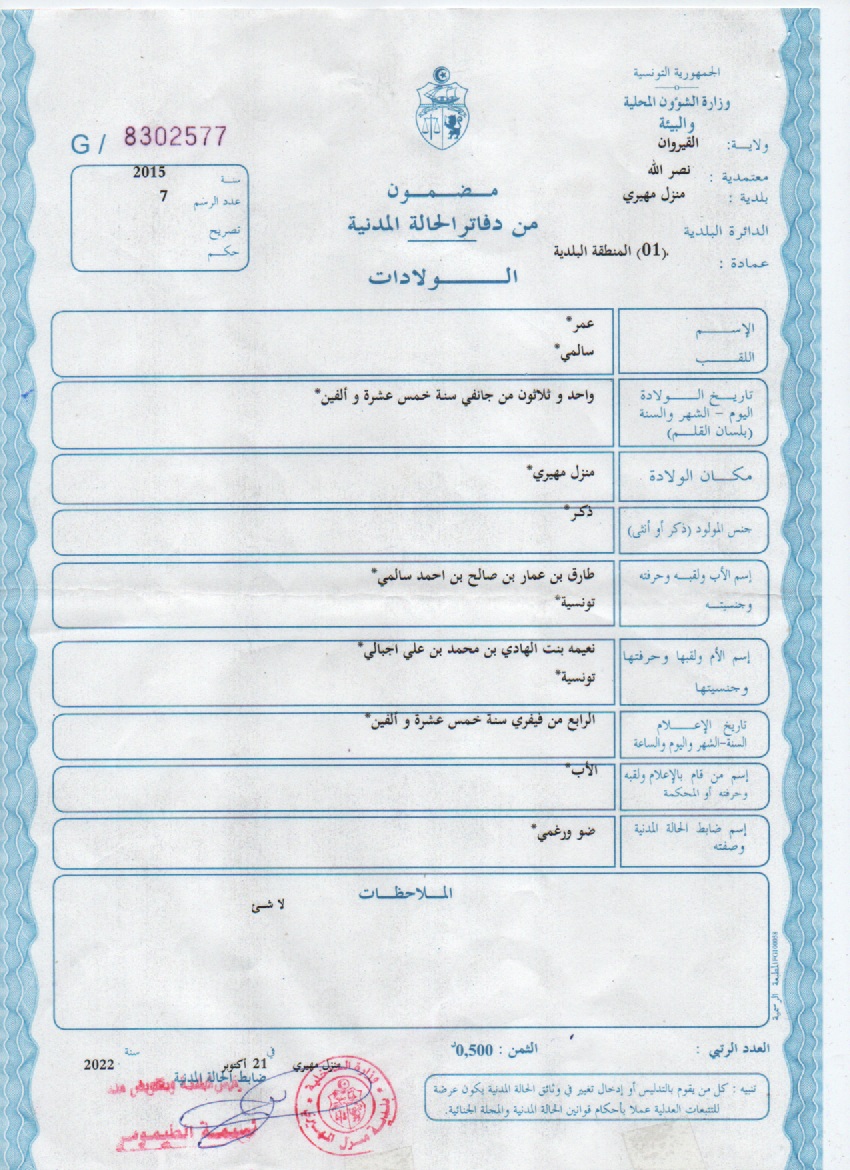 الجمهورية التونسية
وزارة الشؤون المحلية
والبيئة
ولايــة : القيروان
معتمدية : نصر الله
بلدية : منزل مهيري
الدائرة البلدية
عمادة : (01) المنطقة البلدية.
G / 8302577
سنة 2015
عدد الرسم 7
تصريح
حكم
مضمون
من دفاتر الحالة المدنية
الولادات
الإســم عمر*
اللقب سالمي*
تاريخ الولادة
اليوم - الشهر والسنة
(بلسان القلم)
واحد و ثلاثون من جانفي سنة خمس عشرة و ألفين*
مكان الولادة منزل مهيري*
جنس المولود (ذكر أو أنثى) ذكر*
إسم الأب ولقبه وحرفته
وجنسيته
طارق بن عمار بن صالح بن احمد سالمي*
تونسية*
إسم الأم ولقبها وحرفتها
وجنسيتها
نعيمه بنت الهادي بن محمد بن علي اجبالي*
تونسية*
تاريخ الإعلام
السنة-الشهر واليوم والساعة
الرابع من فيفري سنة خمس عشرة و ألفين*
إسم من قام بالإعلام ولقبه
وحرفته أو المحكمة
الأب*
إسم ضابط الحالة المدنية
وصفته
ضو ورغمي*
الملاحظات
لا شئ
المطبعة الرسمية
العدد الرتبي :
الثمن : 0,500د
منزل مهيري في 21 أكتوبر سنة 2022
ضابط الحالة المدنية
تنبيه : كل من يقوم بالتدليس أو إدخال تغيير في وثائق الحالة المدنية يكون عرضة
للتتبعات العدلية عملا بأحكام قوانين الحالة المدنية والمجلة الجنائية.